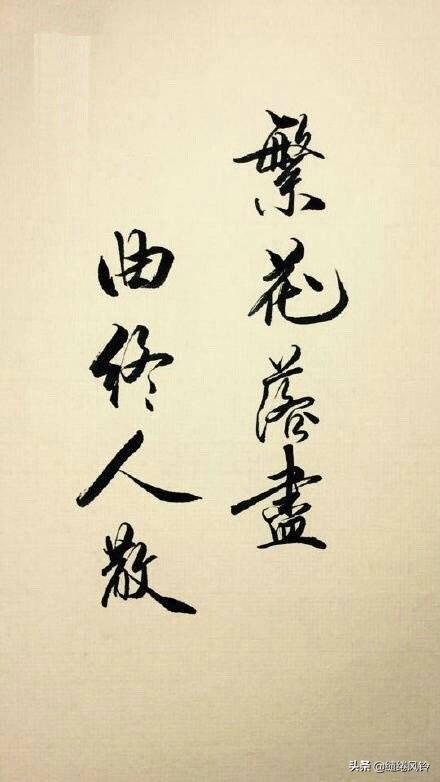 繁花落盡
曲終人散
头条 @缱绻风铃